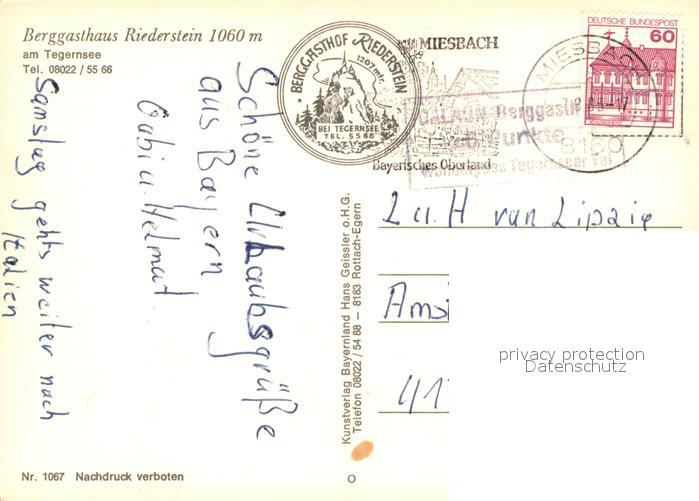 Berggasthaus Riederstein 1060 m
am Tegernsee
Tel. 08022 / 55 66
Schöne Urlaubsgrüße
aus Bayern
Gabi u. Helmut
Samstag gehts weiter nach
Italien
BERGGASTHOF RIEDERSTEIN
1207 mtr.
BEI TEGERNSEE
TEL. 5566
MIESBACH
Bayerisches Oberland
MIESBACH
8160
DEUTSCHE BUNDESPOST
60
Berggasth
Punkte
Tegernseer Tal
L u. H van Lipzig
Kunstverlag Bayernland Hans Geissler o.H.G.
Telefon 08022 / 54 88 – 8183 Rottach-Egern
privacy protection
Datenschutz
Nr. 1067 Nachdruck verboten